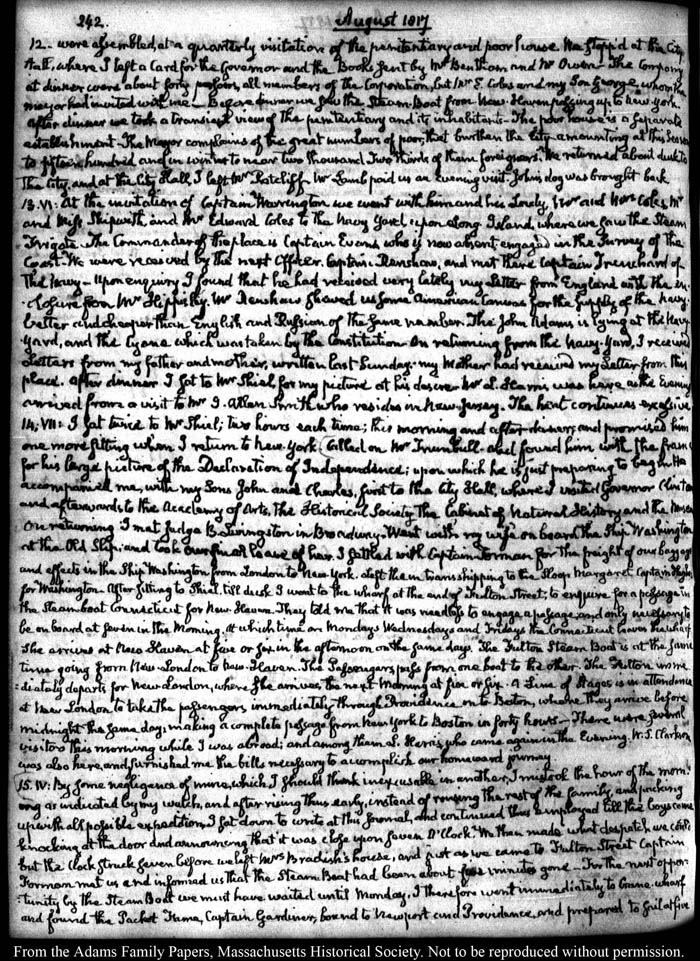 242.
August 1817
12. were assembled, at a quarterly visitation of the penitentiary and poor house. We stopp'd at the City
Hall, where I left a Card for the Governor and the Books sent by Mr Bentham and Mr Owen — The Company
at dinner were about forty persons, all members of the Corporation, but Mr E. Coles and my Son George whom the
mayor had invited with me — Before dinner we saw the Steam Boat from New Haven passing up to New York.
After dinner we took a transient view of the penitentiary and its inhabitants — The poor house is a separate
establishment — The Mayor complains of the great numbers of poor, that burthen the City amounting at this Season
to fifteen hundred and in winter to near two thousand. Two thirds of them foreigners. We returned about dusk to
the City, and at the City Hall I left Mr Ratcliff. Mr Lamb paid us an evening visit. John's dog was brought back
13. VI. At the invitation of Captain Warrington we went with him and his Lady, Mr and Mrs Coles, Mr
and Miss Skipwith, and Mr Edward Coles to the Navy Yard upon Long Island, where we saw the Steam
Frigate. The Commander of the place is Captain Evans who is now absent engaged in the Survey of the
Coast. We were received by the next Officer, Captain Renshaw, and met there Captain Trenchard of
the Navy — Upon enquiry I found that he had received very lately my Letter from England with the in-
closure from Mr Flippisley. Mr Renshaw shewed us some American Canvas for the supply of the Navy
better and cheaper than English and Russian of the same number. The John Adams is lying at the Navy
Yard, and the Cyane which was taken by the Constitution. On returning from the Navy-Yard, I received
Letters from my father and mother, written last Sunday. my Mother had received my Letter from this
place. After dinner I sat to Mr Shiel for my picture at his desire. Mr L. Harris was here and Evening
arrived from a visit to Mr J. Allen Smith who resides in New Jersey. The heat continues excessive
14. VII: I sat twice to Mr Shiel; two hours each time; this morning and after dinner, and promised him
one more sitting when I return to New York. Called on Mr Trumbull and found him with the frame
for his large picture of the Declaration of Independence; upon which he is just preparing to begin. He
accompanied me, with my Sons John and Charles, first to the City Hall, where I visited Governor Clinton
and afterwards to the Academy of Arts, The Historical Society, The Cabinet of Natural History and the Museum
On returning I met Judge B. Livingston in Broadway. Went with my wife on board the Ship Washington
at the Old Slip, and took our final leave of her. I settled with Captain Forman for the freight of our baggage
and effects in the Ship Washington from London to New York. Left them transshipping to the Sloop Margaret Captain
for Washington. After sitting to Shiel, till dusk I went to the wharf at the end of Fulton Street, to enquire for a passage in
the Steamboat Connecticut for New Haven. They told me that it was needless to engage a passage, and only necessary to
be on board at seven in the Morning. At which time on Mondays Wednesdays and Fridays the Connecticut leaves the wharf
She arrives at New Haven at five or six in the afternoon on the same days. The Fulton Steam Boat is at the same
time going from New London to New Haven. The Passengers pass from one boat to the other. The Fulton imme-
diately departs for New London, where she arrives the next Morning at five or six. A Line of Stages is in attendance
at New London to take the passengers immediately through Providence on to Boston, where they arrive before
midnight the same day; making a complete passage from New York to Boston in forty hours — There were several
visitors this morning while I was abroad; and among them L. Harris, who came again in the Evening. W. S. Clarkson
was also here, and furnished me the bills necessary to accomplish our homeward journey
15. IV: By some negligence of mine, which I should think inexcusable in another, I mistook the hour of the morn-
ing as indicated by my watch, and after rising thus early, instead of rousing the rest of the family, and packing
up with all possible expedition, I sat down to write at this Journal, and continued thus employed till the boys came
knocking at the door and announcing that it was close upon seven O'Clock. We then made what despatch we could
but the Clock struck seven before we left Mrs Bradish's house, and just as we came to Fulton Street Captain
Forman met us and informed us that the Steam Boat had been about five minutes gone — For the next oppor-
tunity by the Steam Boat we must have waited until Monday. I therefore went immediately to Crane wharf
and found the Packet Fame, Captain Gardiner, bound to Newport and Providence, and prepared to sail at five
From the Adams Family Papers, Massachusetts Historical Society. Not to be reproduced without permission.